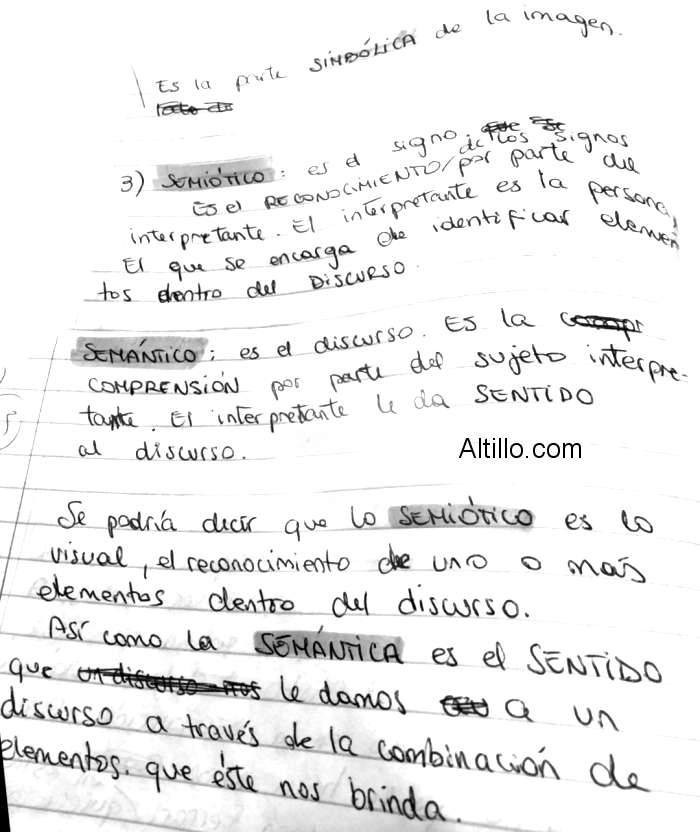 Es la parte SIMBÓLICA de la imagen.
3) SEMIÓTICO: es el signo.
Es el RECONOCIMIENTO/ de los signos por parte del
interpretante. El interpretante es la persona,
El que se encarga de identificar elemen
tos dentro del DISCURSO.
SEMÁNTICO: es el discurso. Es la
COMPRENSIÓN por parte del sujeto interpre-
tante. El interpretante le da SENTIDO
al discurso.
Altillo.com
Se podría decir que lo SEMIÓTICO es lo
visual, el reconocimiento de uno o más
elementos dentro del discurso.
Así como la SEMÁNTICA es el SENTIDO
que un discurso nos le damos a un
discurso a través de la combinación de
elementos. que éste nos brinda.